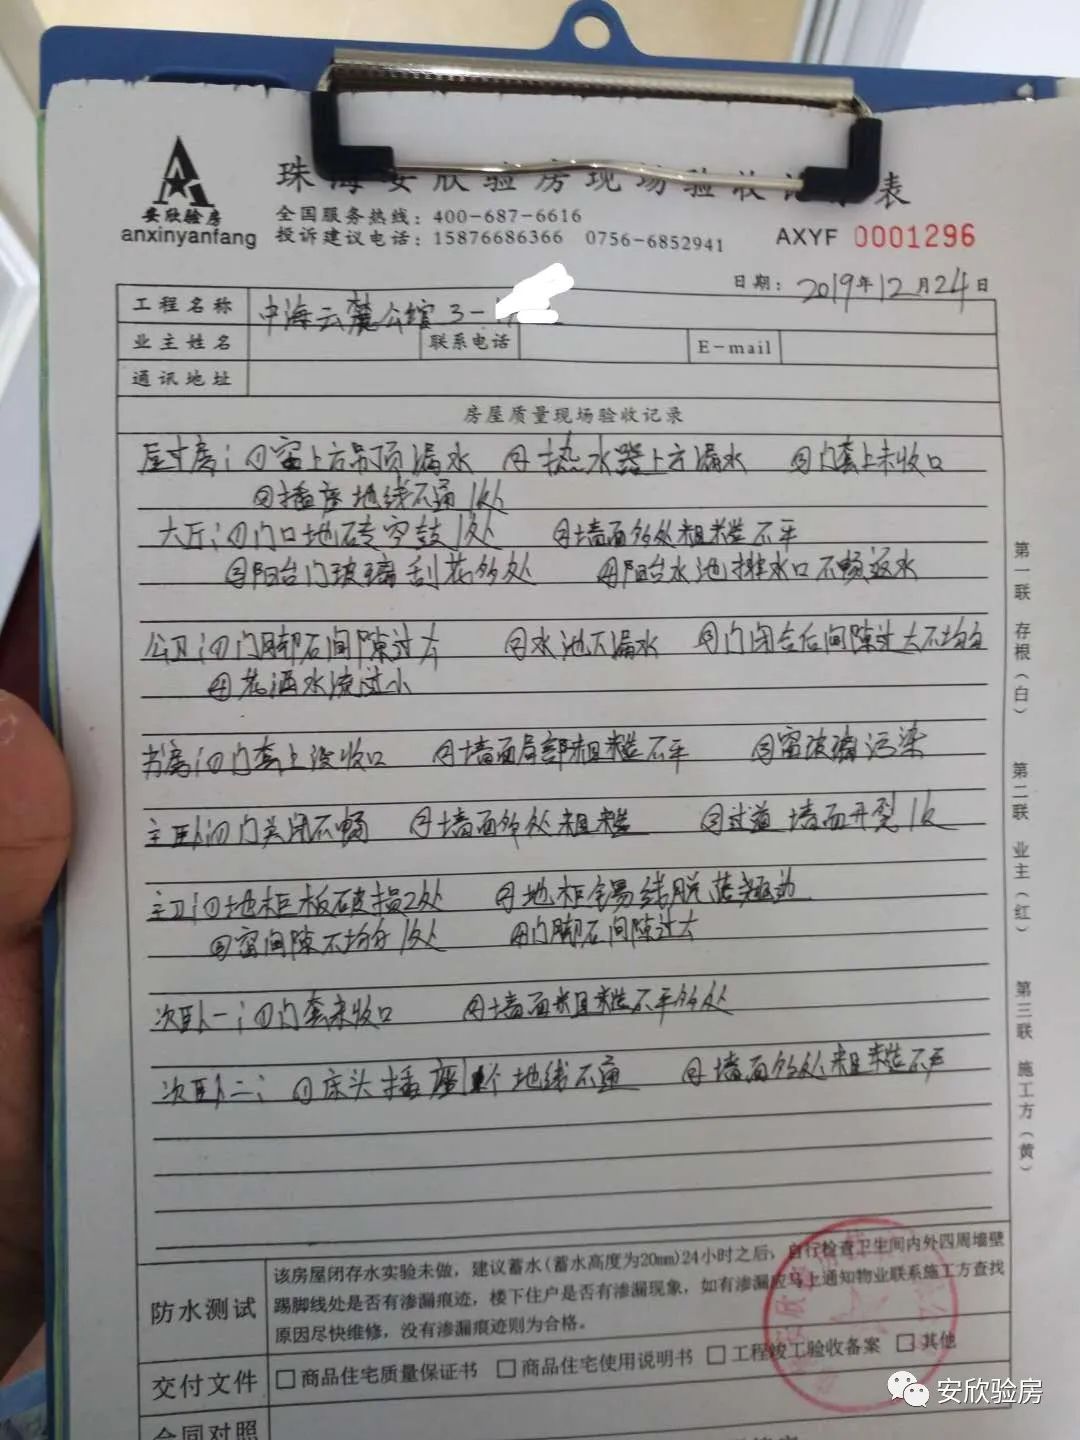 安欣验房
anxinyanfang
珠海安欣验房现场验收记录表
全国服务热线：400-687-6616
投诉建议电话：15876686366 0756-6852941
AXYF 0001296
日期：2019年12月24日
工程名称 中海云麓公馆 3-
业主姓名 联系电话 E-mail
通讯地址
房屋质量现场验收记录
①窗上方吊顶漏水 ②热水器上方漏水 ③门套上未收口
④插座地线不通1处
大厅：①门口地砖空鼓1处 ②墙面多处粗糙不平
③阳台门玻璃刮花多处 ④阳台水池排水口不畅返水
公卫：①门脚石间隙过大 ②水池下漏水 ③门闭合后间隙过大不均匀
④花洒水流过小
书房：①门套上没收口 ②墙面局部粗糙不平 ③窗玻璃污染
主卧：①门关闭不畅 ②墙面多处粗糙 ③过道墙面开裂1处
主卫：①地柜板破损2处 ②地柜
③窗间隙不均匀1处 ④门脚石间隙过大
次卧一：①门套未收口 ②墙面粗糙不平多处
次卧二：①床头插座1个地线不通 ②墙面多处粗糙不平
第一联 存根（白）
第二联 业主（红）
第三联 施工方（黄）
防水测试
该房屋闭存水实验未做，建议蓄水(蓄水高度为20mm)24小时之后，自行检查卫生间内外四周墙壁
踢脚线处是否有渗漏痕迹，楼下住户是否有渗漏现象，如有渗漏应马上通知物业联系施工方查找
原因尽快维修，没有渗漏痕迹则为合格。
交付文件 □商品住宅质量保证书 □商品住宅使用说明书 □工程竣工验收备案 □其他
合同对照
安欣验房